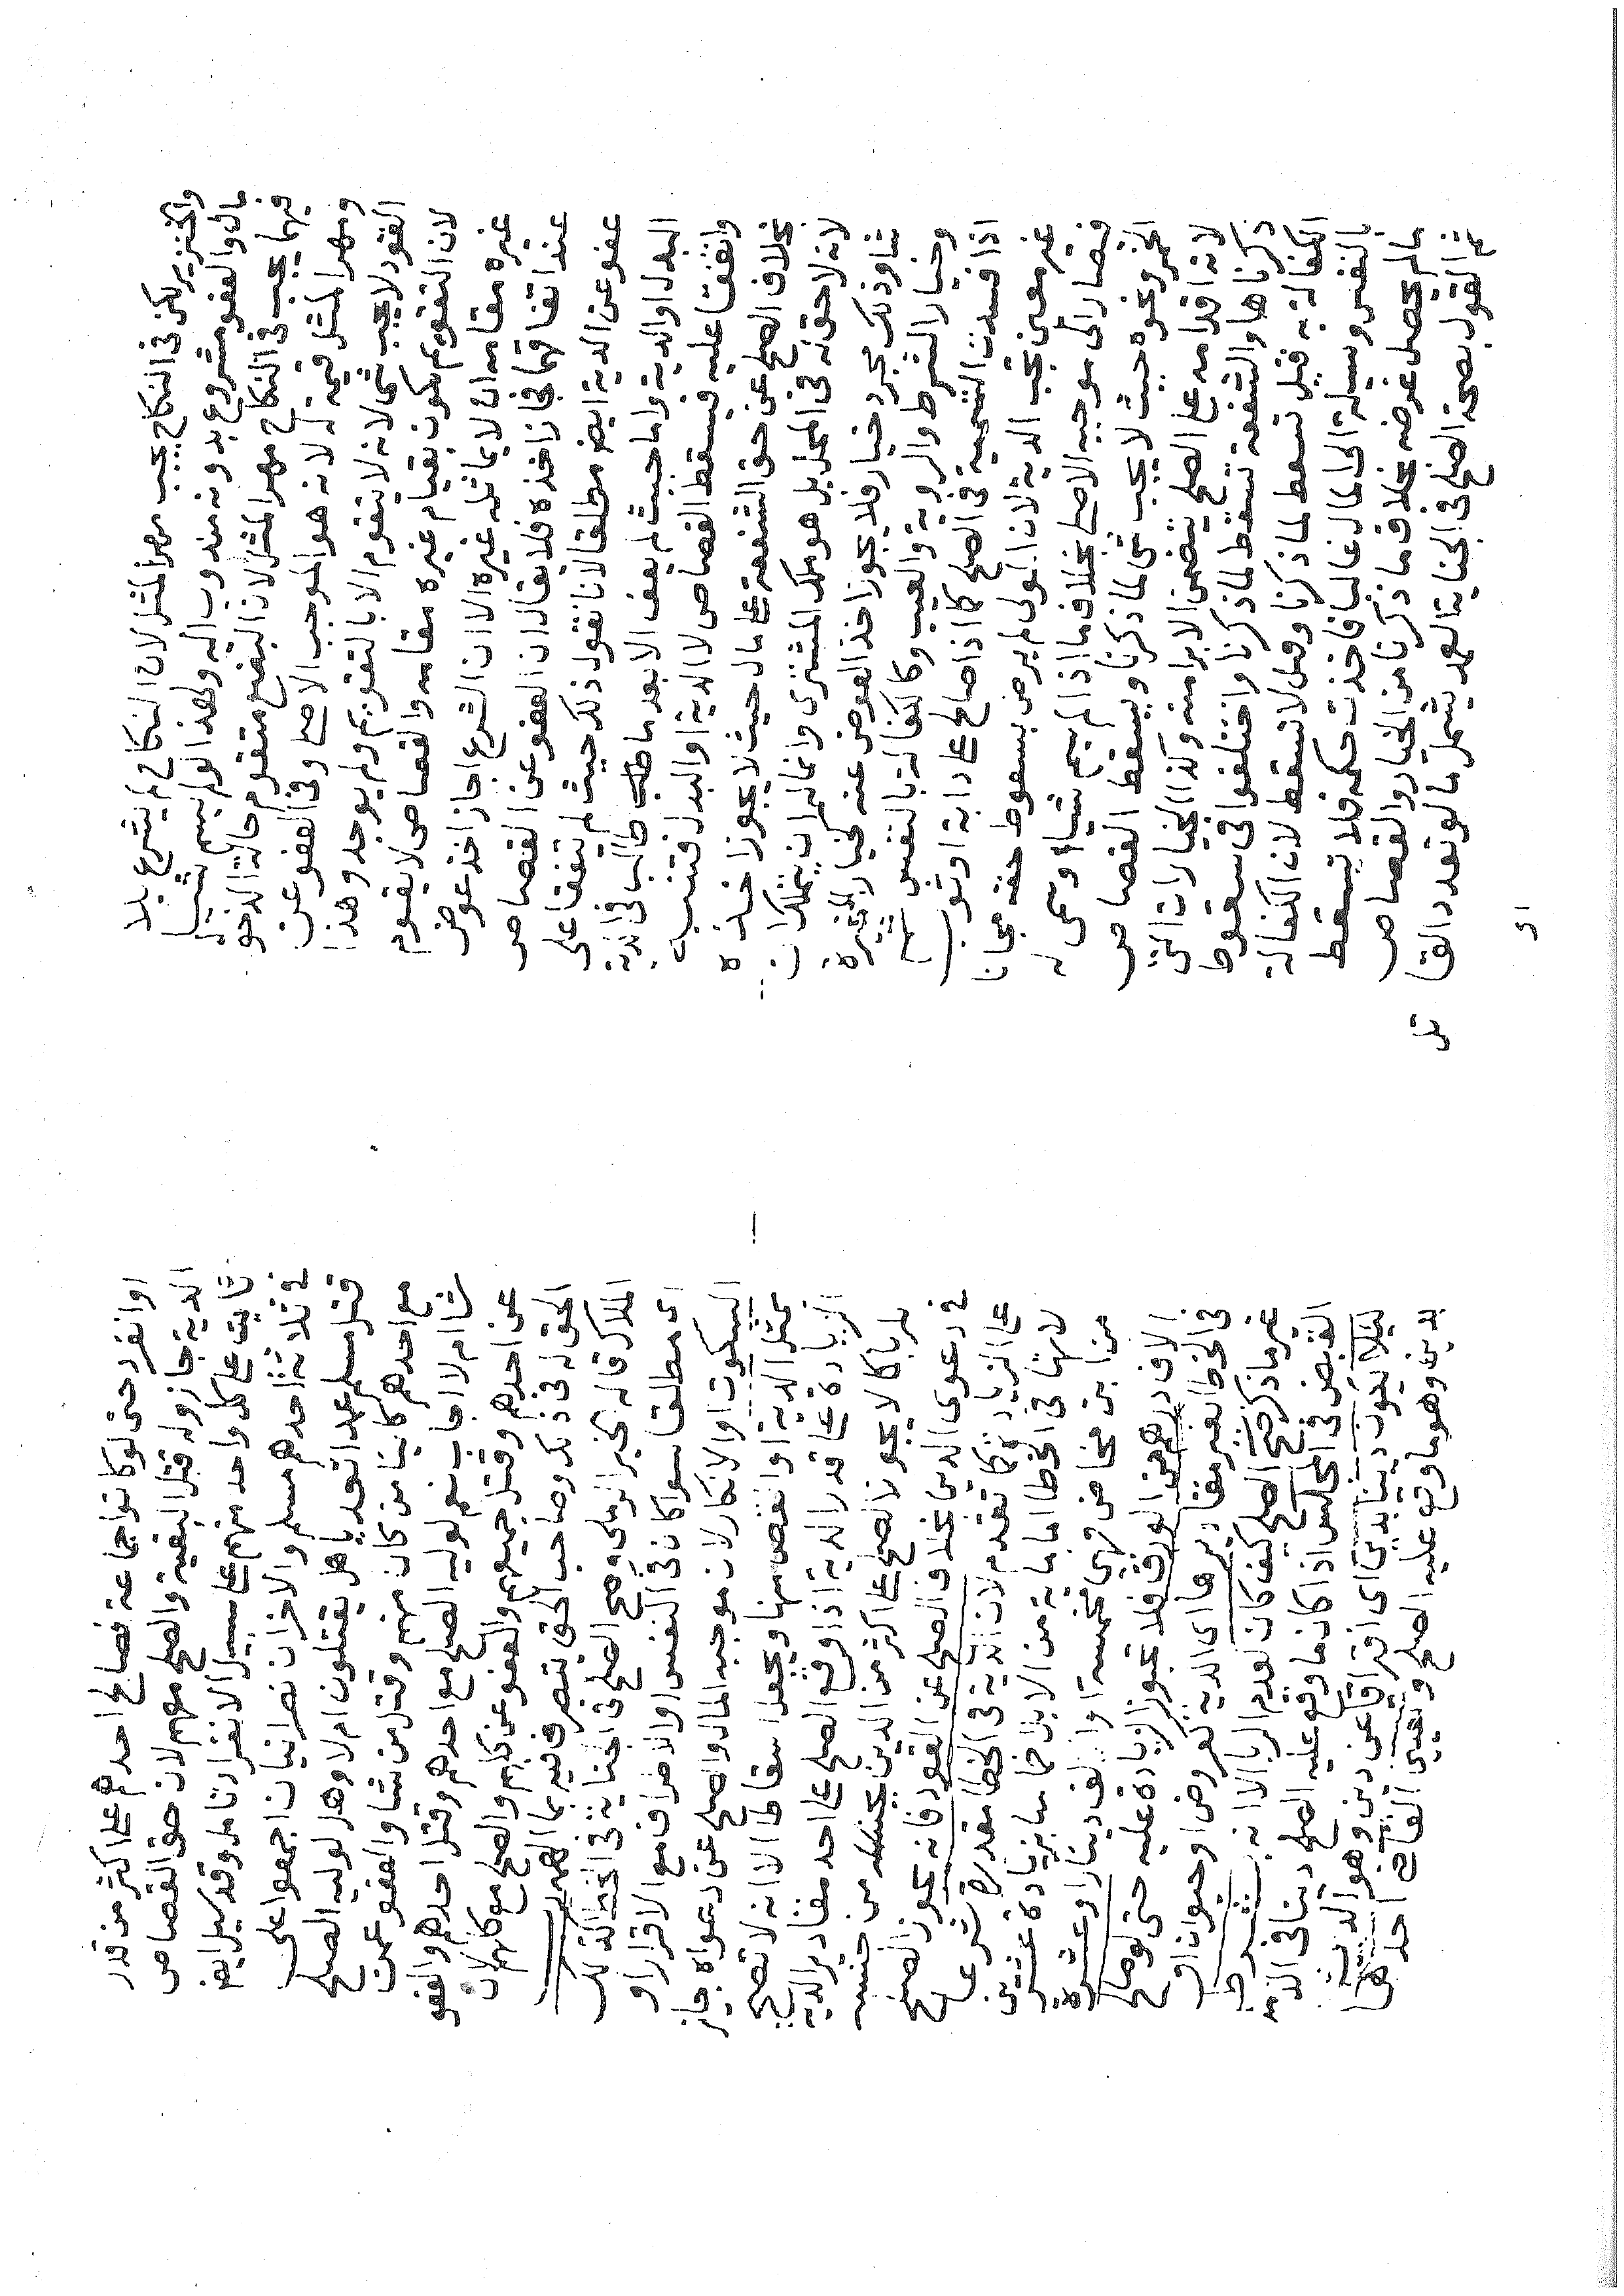 والخنزير لكن في النكاح يجب مهر المثل لان النكاح لم يشرع بلا
مال والعفو مشروع بدونه مندوب اليه ولهذا لو لم يسم شيئا
فيهما يجب في النكاح مهر المثل لان البضع متقوم حالة الدخو
ومهر المثل قيمة له لانه هو الموجب الاصلي وفي العفو عن
القود لا يجب شي لانه لا تتقوم الا بالتقويم ولم يوجد وهذا
لان التقويم تكون بقيام غيره مقامه والقصاص لا يقوم
غيره مقامه اذ لا يماثله غيره الا ان الشرع اجاز اخذ عوض
عند اتفاقهما فجاز اخذه فلا يقال ان العفو عن القصاص
عفو عن الدية ايض مطلقا لانا نقول ذلك حيث لم يتفقا على
البدل او الدية واما حيث لم يعف الا بعد ما طالبا في الدية
واتفقا عليه فيسقط القصاص لا الدية او البدل فتنبه
بخلاف الصلح عن حق الشفعة على مال حيث لا يجوز اخذه
لانه لا حق له في المحل بل هو ملك المشتري وانما له ان يتملك ان
شاء وذلك مجرد خيار فلا يجوز اخذ العوض عنه كخيار المخيرة
وخيار الشرط والروية والعيب وكالكفالة بالنفس ثم
اذا فسدت التسمية في الصلح كما اذا صالح على دابة او ثوب
غير معين تجب الدية لان الولي لم يرض بسقوط حقه مجانا
فيصار الى موجبه الاصلي بخلاف ما اذا لم يسم شياء وسمى له
الخمر ونحوه حيث لا يجب شي لما ذكرنا ويسقط القصاص
لانه اقدامه على الصلح يتضمن الابرا منه وكذا الخيارات التي
ذكرناها والشفعة تسقط لما ذكرنا واختلفوا في سقوط
الكفالة به قيل تسقط لما ذكرنا وقيل لا تسقط لان الكفالة
بالنفس وسيلة الى المال غالبا فاخذت حكمه فلا يسقط
مالم يحصل غرضه بخلاف ما ذكرنا من الخيار والقصاص
ثم القول بصحة الصلح في الجناية العمد يشمل ما لو تعدد القا
تل
او انفرد حتى لو كانوا جماعة فصالح احدهم على اكثر من قدر
الدية جاز وله قتل البقية والصلح معهم لان حق القصاص
ثابت على كل واحد منهم على سبيل الانفراد تامل وقد سيل ايض
في ثلاثة احدهم مسلم والاخران نصرانيان اجمعوا على
قتل مسلم عمدا تعديا هل يقتلون ام لا وهل لوليه الصلح
مع احدهم كاينا من كان منهم وقتل من شا والعفو عمن
شا ام لا اجاب نعم لوليه الصلح مع احدهم وقتل احدهم والعفو
عن احدهم وقتل جميعهم والعفو عن كلهم والصلح مع كلهم لان
الحق له في ذلك وصاحب الحق يتصرف فيه بما الهمه
الملك قاله الخير الرملي وصح الصلح في الجناية في الخطا كذلك
اي مطلقا سوا كان في النفس او الاطراف مع الاقرار او
السكوت او الانكار لان موجبه المال والصلح عن دعواه جاز
بمثل الدية او انقص منها ويجعل اسقاطا الا انه لا تصح
الزيادة على قدر الدية اذا وقع الصلح على احد مقادير الدية
للربا كما لا يجوز الصلح على اكثر من الدين بجنسه من جنسه
في دعوى الدين بخلاف الصلح عن القود فانه يجوز الصلح
على الزيادة كما تقدم لان الدية في الخطا مقدرة شرعا
لانها في الخطا اما ماية من الابل اخماسا بزيادة عشرين
من ابن مخاض فهي مخمسة او الف دينار او عشرة
الاف درهم من الورق فلا تجوز الزيادة عليه حتى لو صالح
في الخطا بغير مقاديرها اي الدية كعروض او حيوان او
غير ما ذكر صح الصلح كيف كان لعدم الربا الا انه بشرط
القبض في المجلس اذا كان ما وقع عليه الصلح دينا في الذمة
ليلا يكون دينا بدين اي افتراقا عن دين وهو الدية
بدين وهو ما وقع عليه الصلح وتعيين القاضي احدها